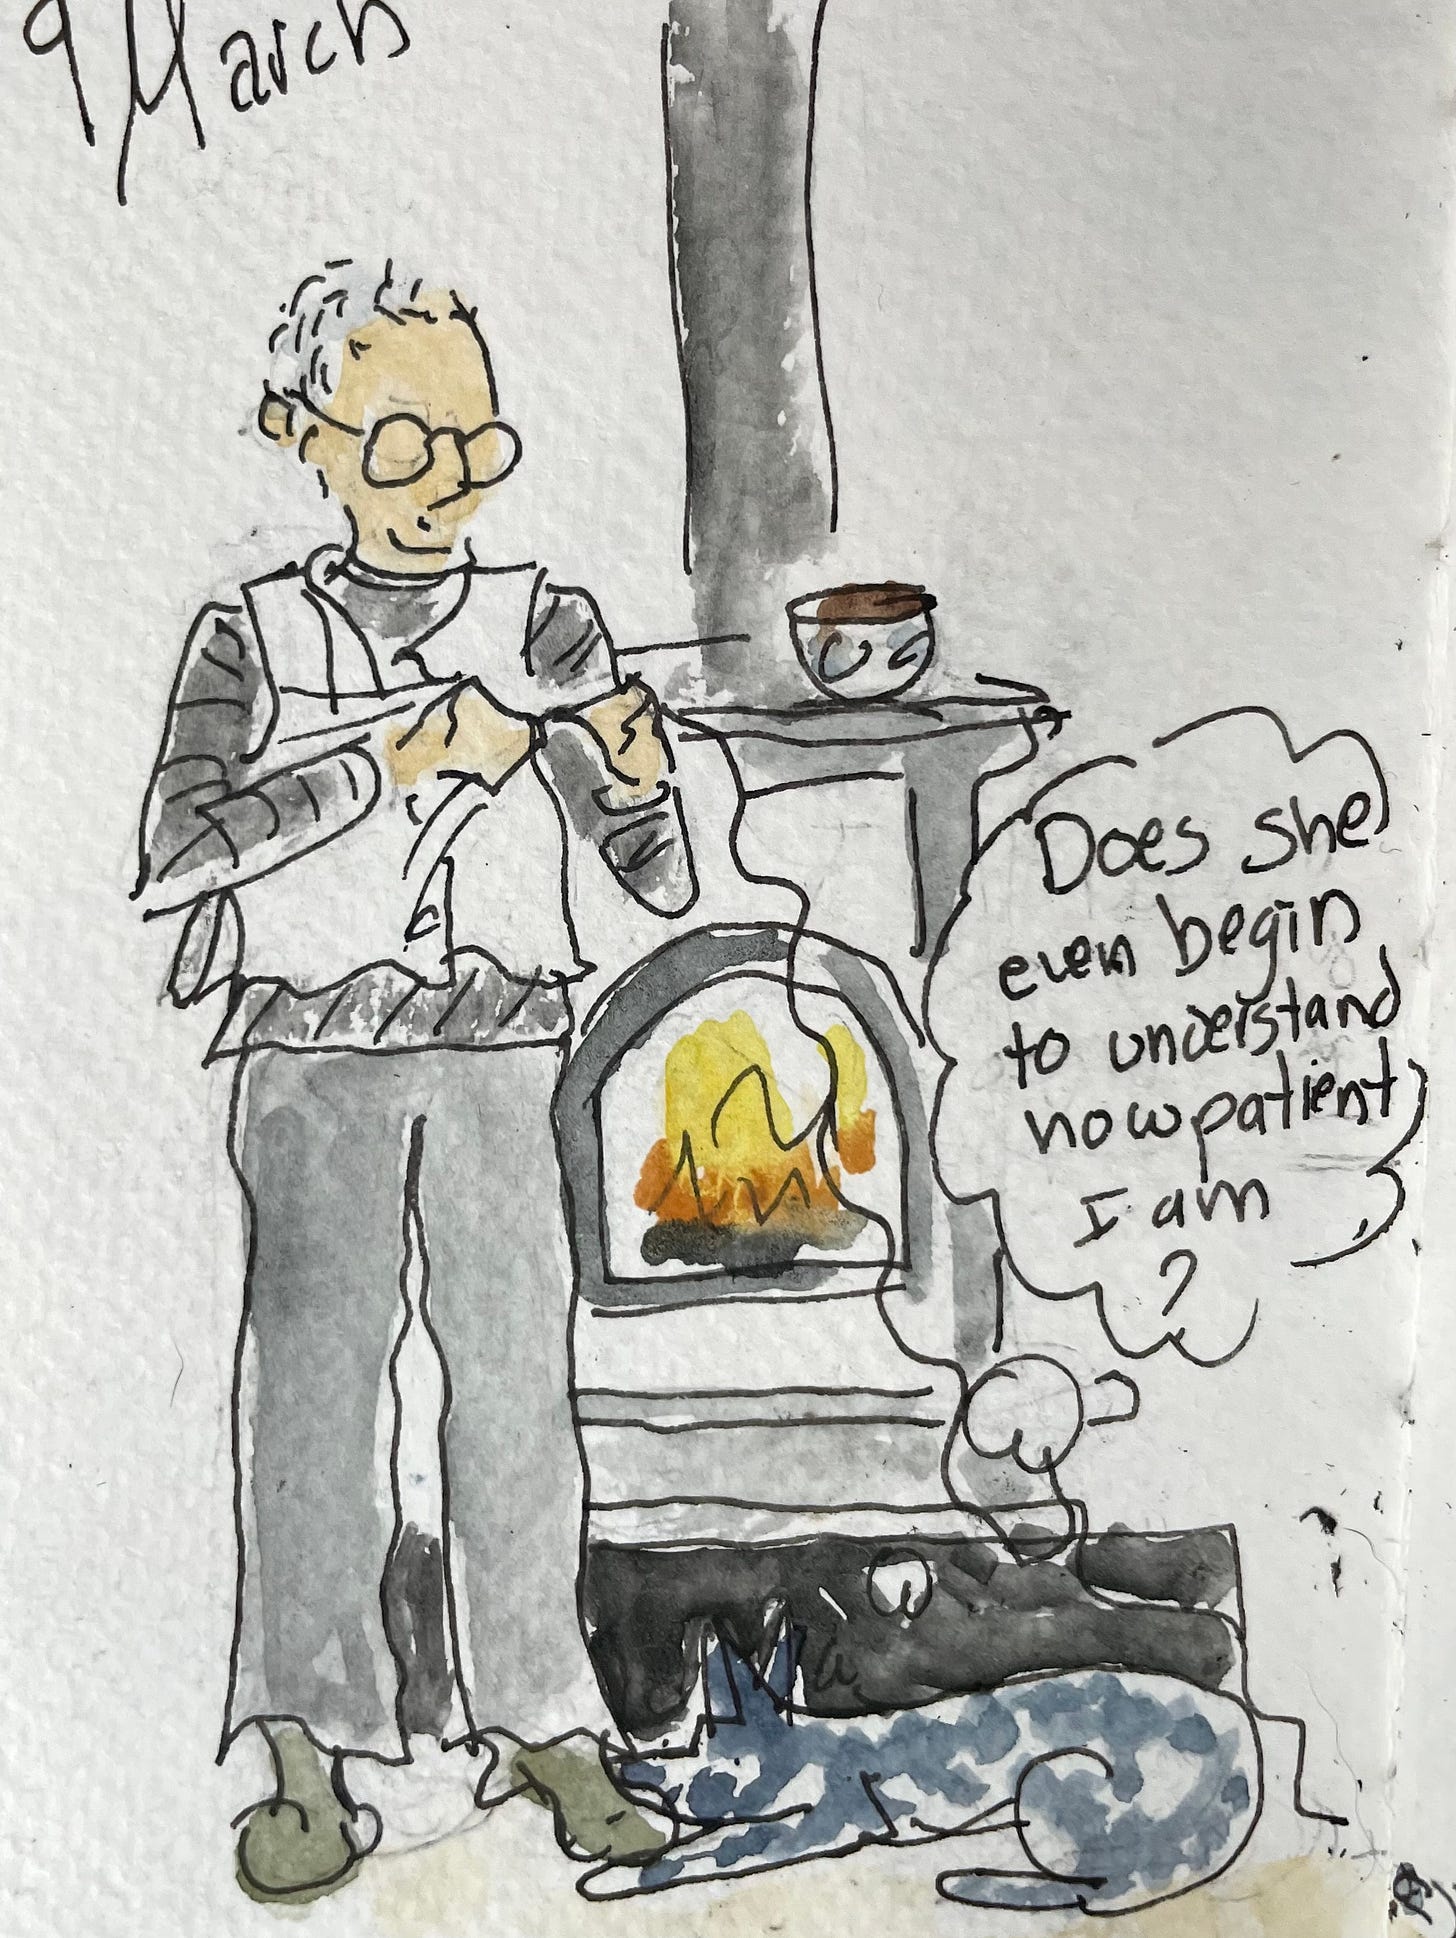 9 March
Does she
even begin
to understand
how patient
I am
?